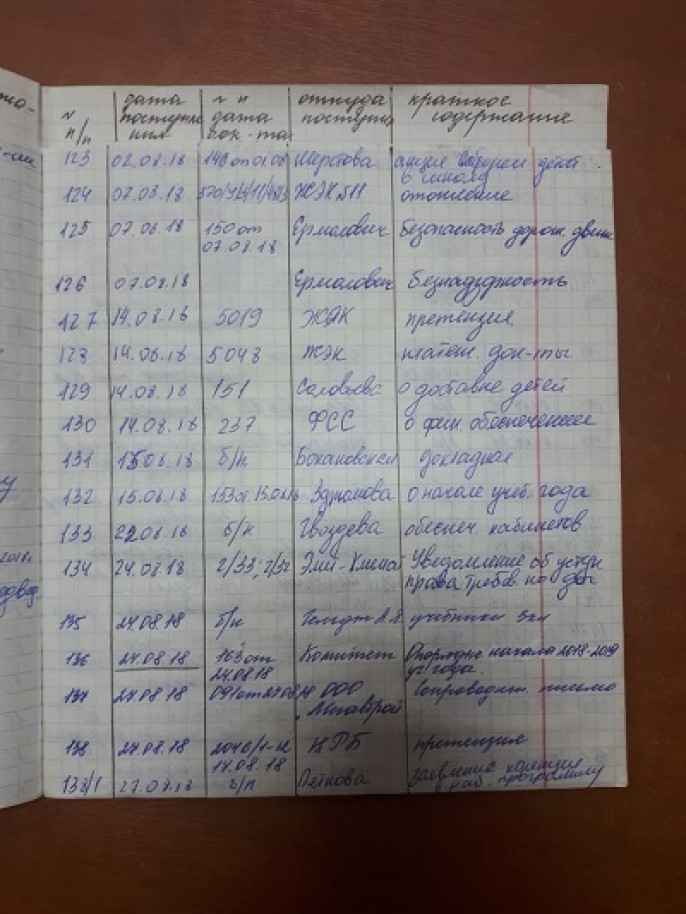 № п/п дата поступления № и дата док-та откуда поступил краткое содержание
123 02.08.18 146 от 01.08 Шерстова акция Соберем детей в школу
124 07.08.18 ЖЭК №11 отопление
125 07.08.18 150 от 07.08.18 Ермолович Безопасность дорож. движ
126 07.08.18 Ермолович Безнадзорность
127 14.08.18 5019 ЖЭК претензия
128 14.08.18 5048 ЖЭК платеж. док-ты
129 14.08.18 151 Соловьева о доставке детей
130 14.08.18 237 ФСС о фин. обеспечении
131 15.08.18 б/н докладная
132 15.08.18 153 от 15.08.18 о начале учеб. года
133 22.08.18 б/н Гвоздева обеспеч. кабинетов
134 24.08.18 2/33; 2/32 Уведомление об уступ. права требов. по дог
135 24.08.18 б/н учебники
136 24.08.18 163 от 24.08.18 Комитет О порядке начала 2018-2019 уч. года
137 24.08.18 ООО Сопроводит. письмо
138 24.08.18 14.08.18 претензия
138/1 27.08.18 б/н заявление